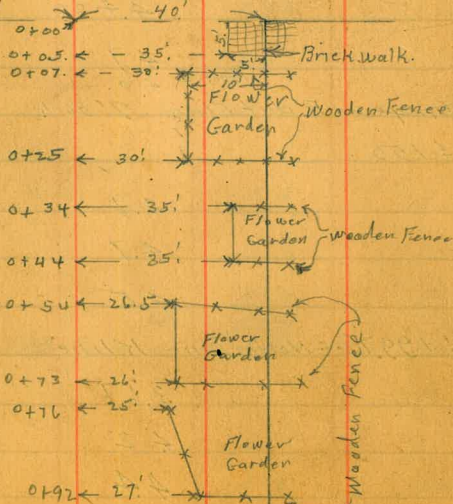 40'
0+00
5'
0+05. 35' Brick walk.
0+07. 30' 5'
10'
Flower
Garden
Wooden Fence
0+25 30'
0+34 35'
Flower
Garden
Wooden Fence
0+44 35'
0+54 26.5
Flower
Garden
Wooden Fence
0+73 26'
0+76 25'
Flower
Garden
0+92 27'